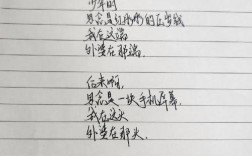 少年时
思念是红彤彤的压岁钱
我在这端
外婆在那端。
后来啊,
思念是一块手机屏幕
我在这头
外婆在那头。